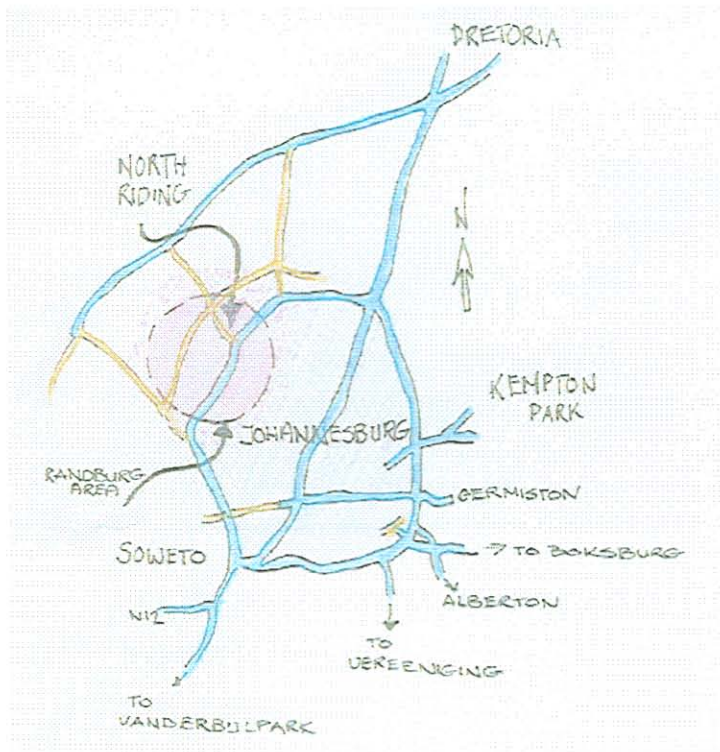 DRETORIA
NORTH
RIDING
N
KEMPTON
PARK
JOHANNESBURG
RANDBURG
AREA
GERMISTON
SOWETO
→ TO BOKSBURG
ALBERTON
N12
TO
VEREENIGING
TO
VANDERBIJLPARK